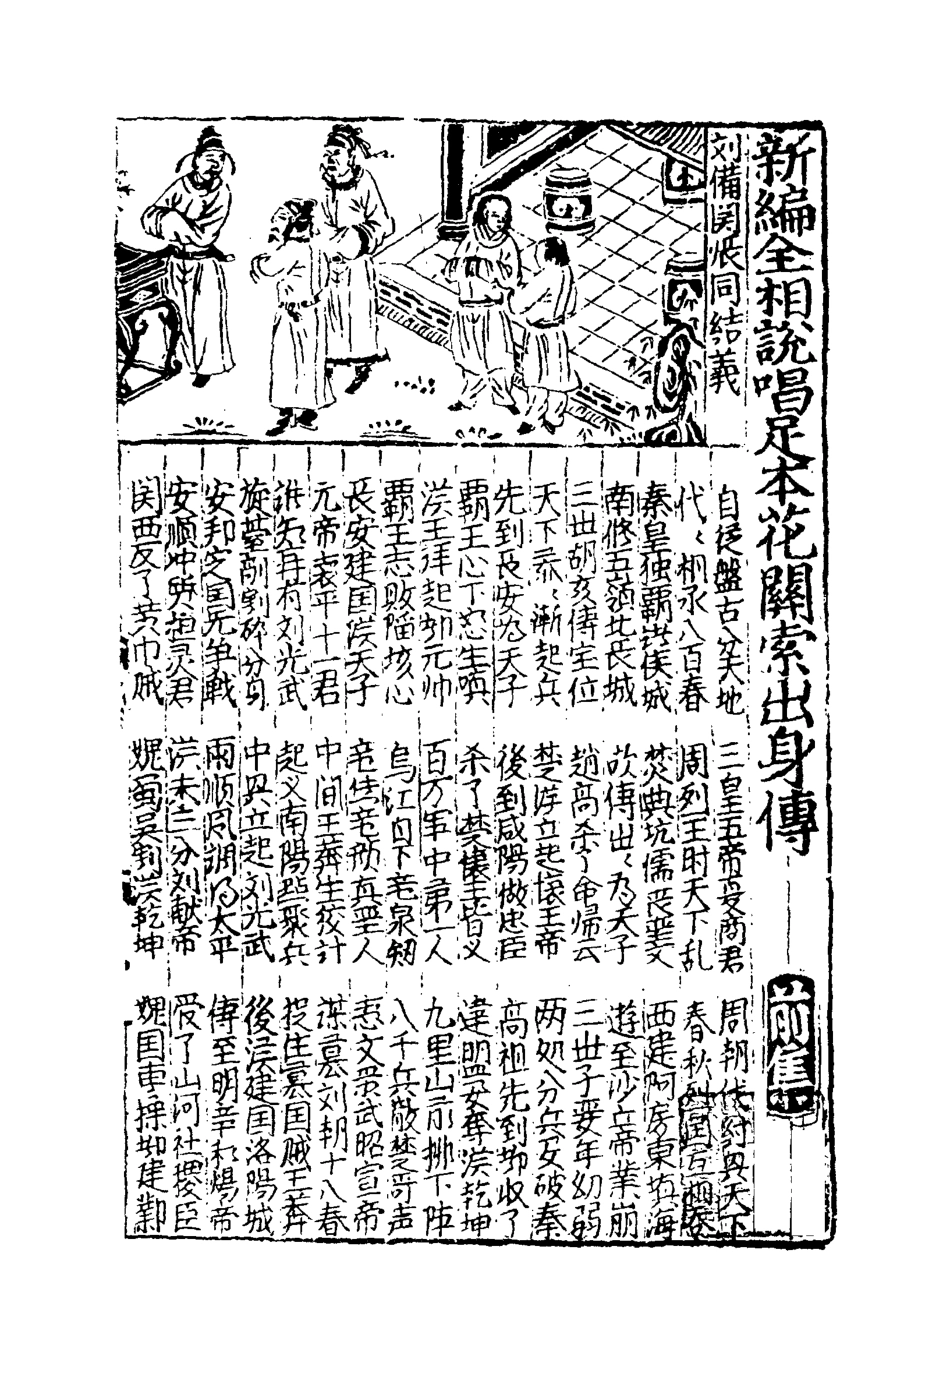 新編全相說唱足本花關索出身傳 前集
刘備関张同結義
自従盤古分天地 三皇五帝夏商君 周朝伐紂興天下
代〻相承八百春 周列王时天下乱 春秋烈国互相吞
秦皇独霸諸侯城 焚典坑儒丧圣文 西建阿房東填海
南修五嶺北長城 欲傳世〻为天子 遊至沙丘帝業崩
三世胡亥傳宝位 趙高杀了命帰云 三世子嬰年幼弱
天下荒〻漸起兵 楚游立起懷王帝 两処分兵去破秦
先到長安为天子 後到咸陽做忠臣 高祖先到都收了
霸王心下忽生嗔 杀了楚懷王皆义 違盟要奪漢乾坤
漢王拜起 元帅 百万軍中弟一人 九里山前排下阵
霸王志敗 垓心 烏江自下 泉剱 八千兵散楚哥声
長安建国漢天子 真圣人 惠文景武昭宣帝
元帝哀平十一君 中间王莽生狡計 謀篡刘朝十八春
誰知再有刘光武 起义南陽 聚兵 捉住篡国贼王莽
旋臺剐割碎分身 中興立起刘光武 後漢建国洛陽城
安邦定国无争戰 雨順风調得太平 傳至明章和殤帝
安順冲質桓灵君 漢末三分刘献帝 受了山河社稷臣
関西反了黄巾贼 魏蜀吴割漢乾坤 魏国曹操都建鄴